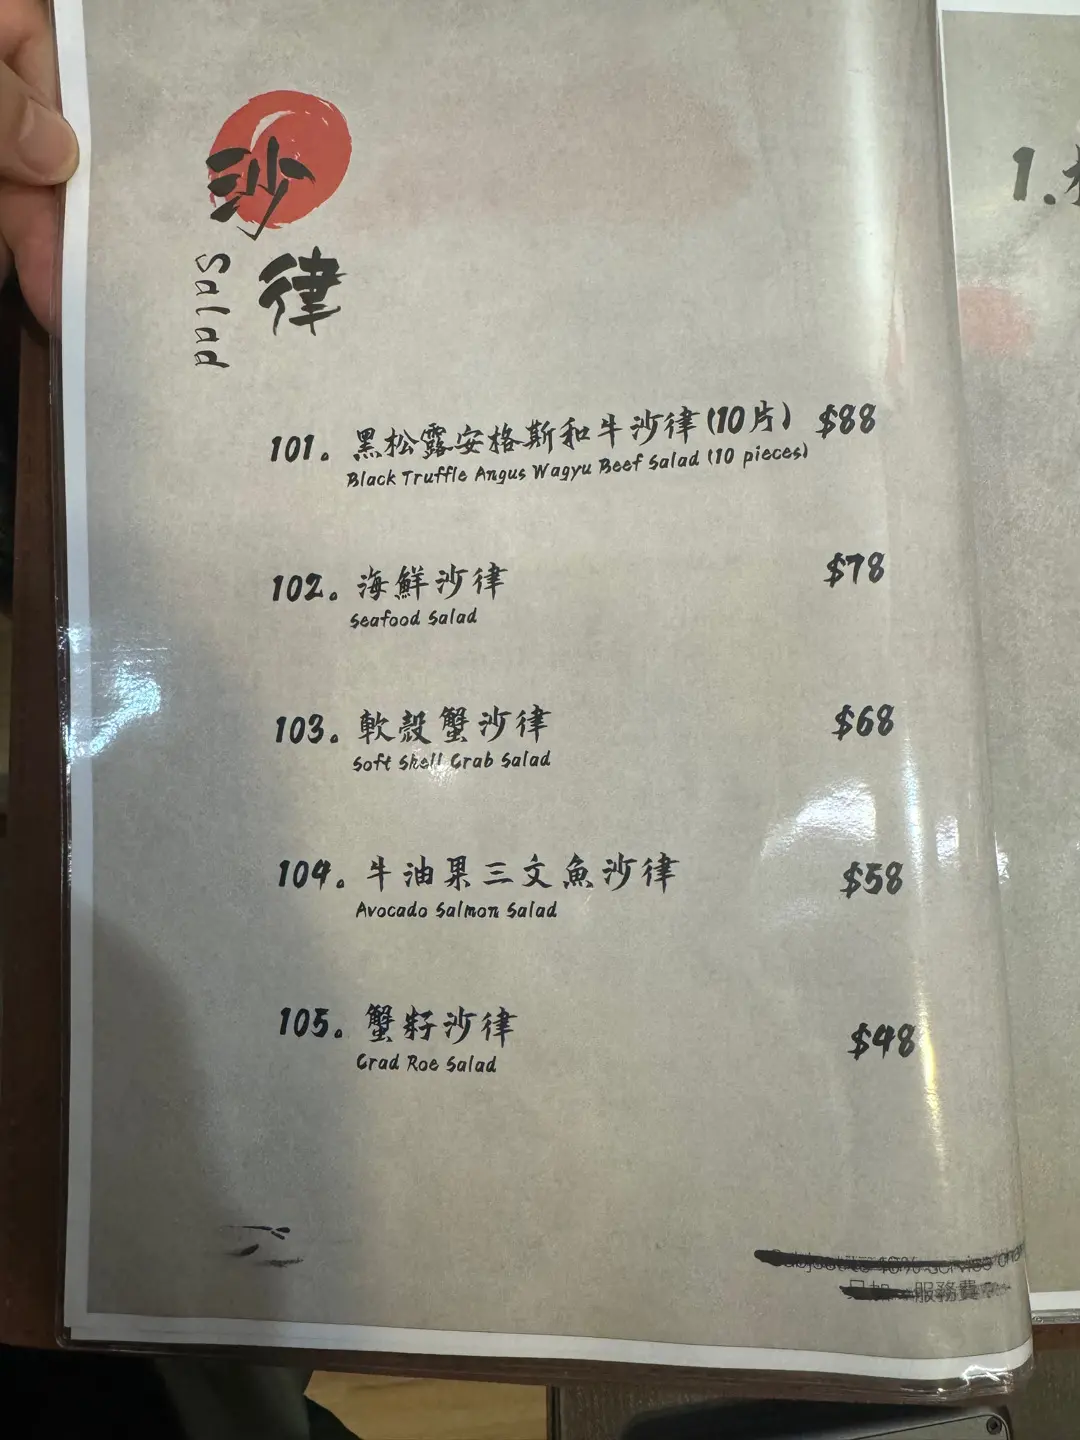 沙律
Salad
101. 黑松露安格斯和牛沙律(10片) $88
Black Truffle Angus Wagyu Beef Salad (10 pieces)
102. 海鮮沙律 $78
Seafood Salad
103. 軟殼蟹沙律 $68
Soft Shell Crab Salad
104. 牛油果三文魚沙律 $58
Avocado Salmon Salad
105. 蟹籽沙律 $48
Crad Roe Salad
Subject to 10% service
另加 服務費
1.